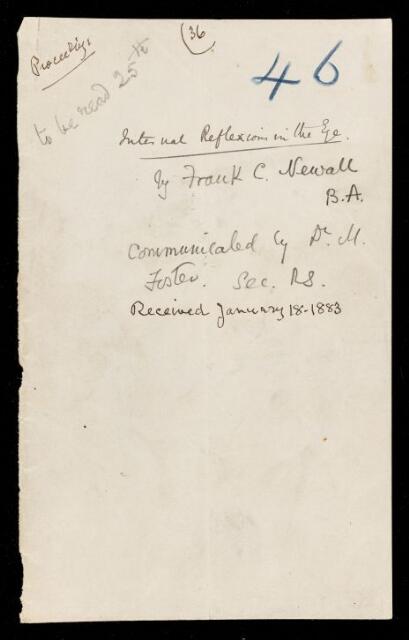 (36
46
Proceedings
to be read 25th
Internal Reflexions in the Eye.
by Frank C. Newall
B.A.
Communicated by Dr. M.
Foster. Sec. RS.
Received January 18-1883